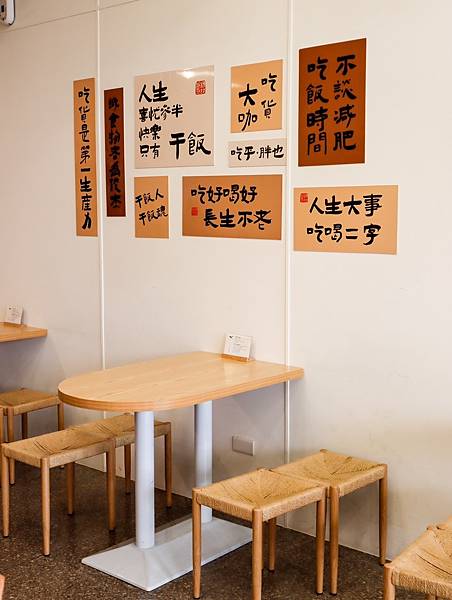 吃貨是第一生產力
人生
喜忙參半
快樂
只有干飯
吃貨
大咖
吃乎·胖也
不談減肥
吃飯時間
干飯人
干飯魂
吃好喝好
長生不老
人生大事
吃喝二字